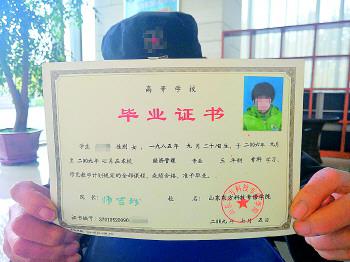 高等学校
毕业证书
学生 性别 女，一九八五年 九月二十 日生，于二〇〇六年 九月
至二〇〇九年 七月在本校 经济管理 专业 三 年制 专科 学习，
修完教学计划规定的全部课程，成绩合格，准予毕业。
院长： 校名：山东东方科技专修学院
证书编号：
二〇〇九年 七月 五日